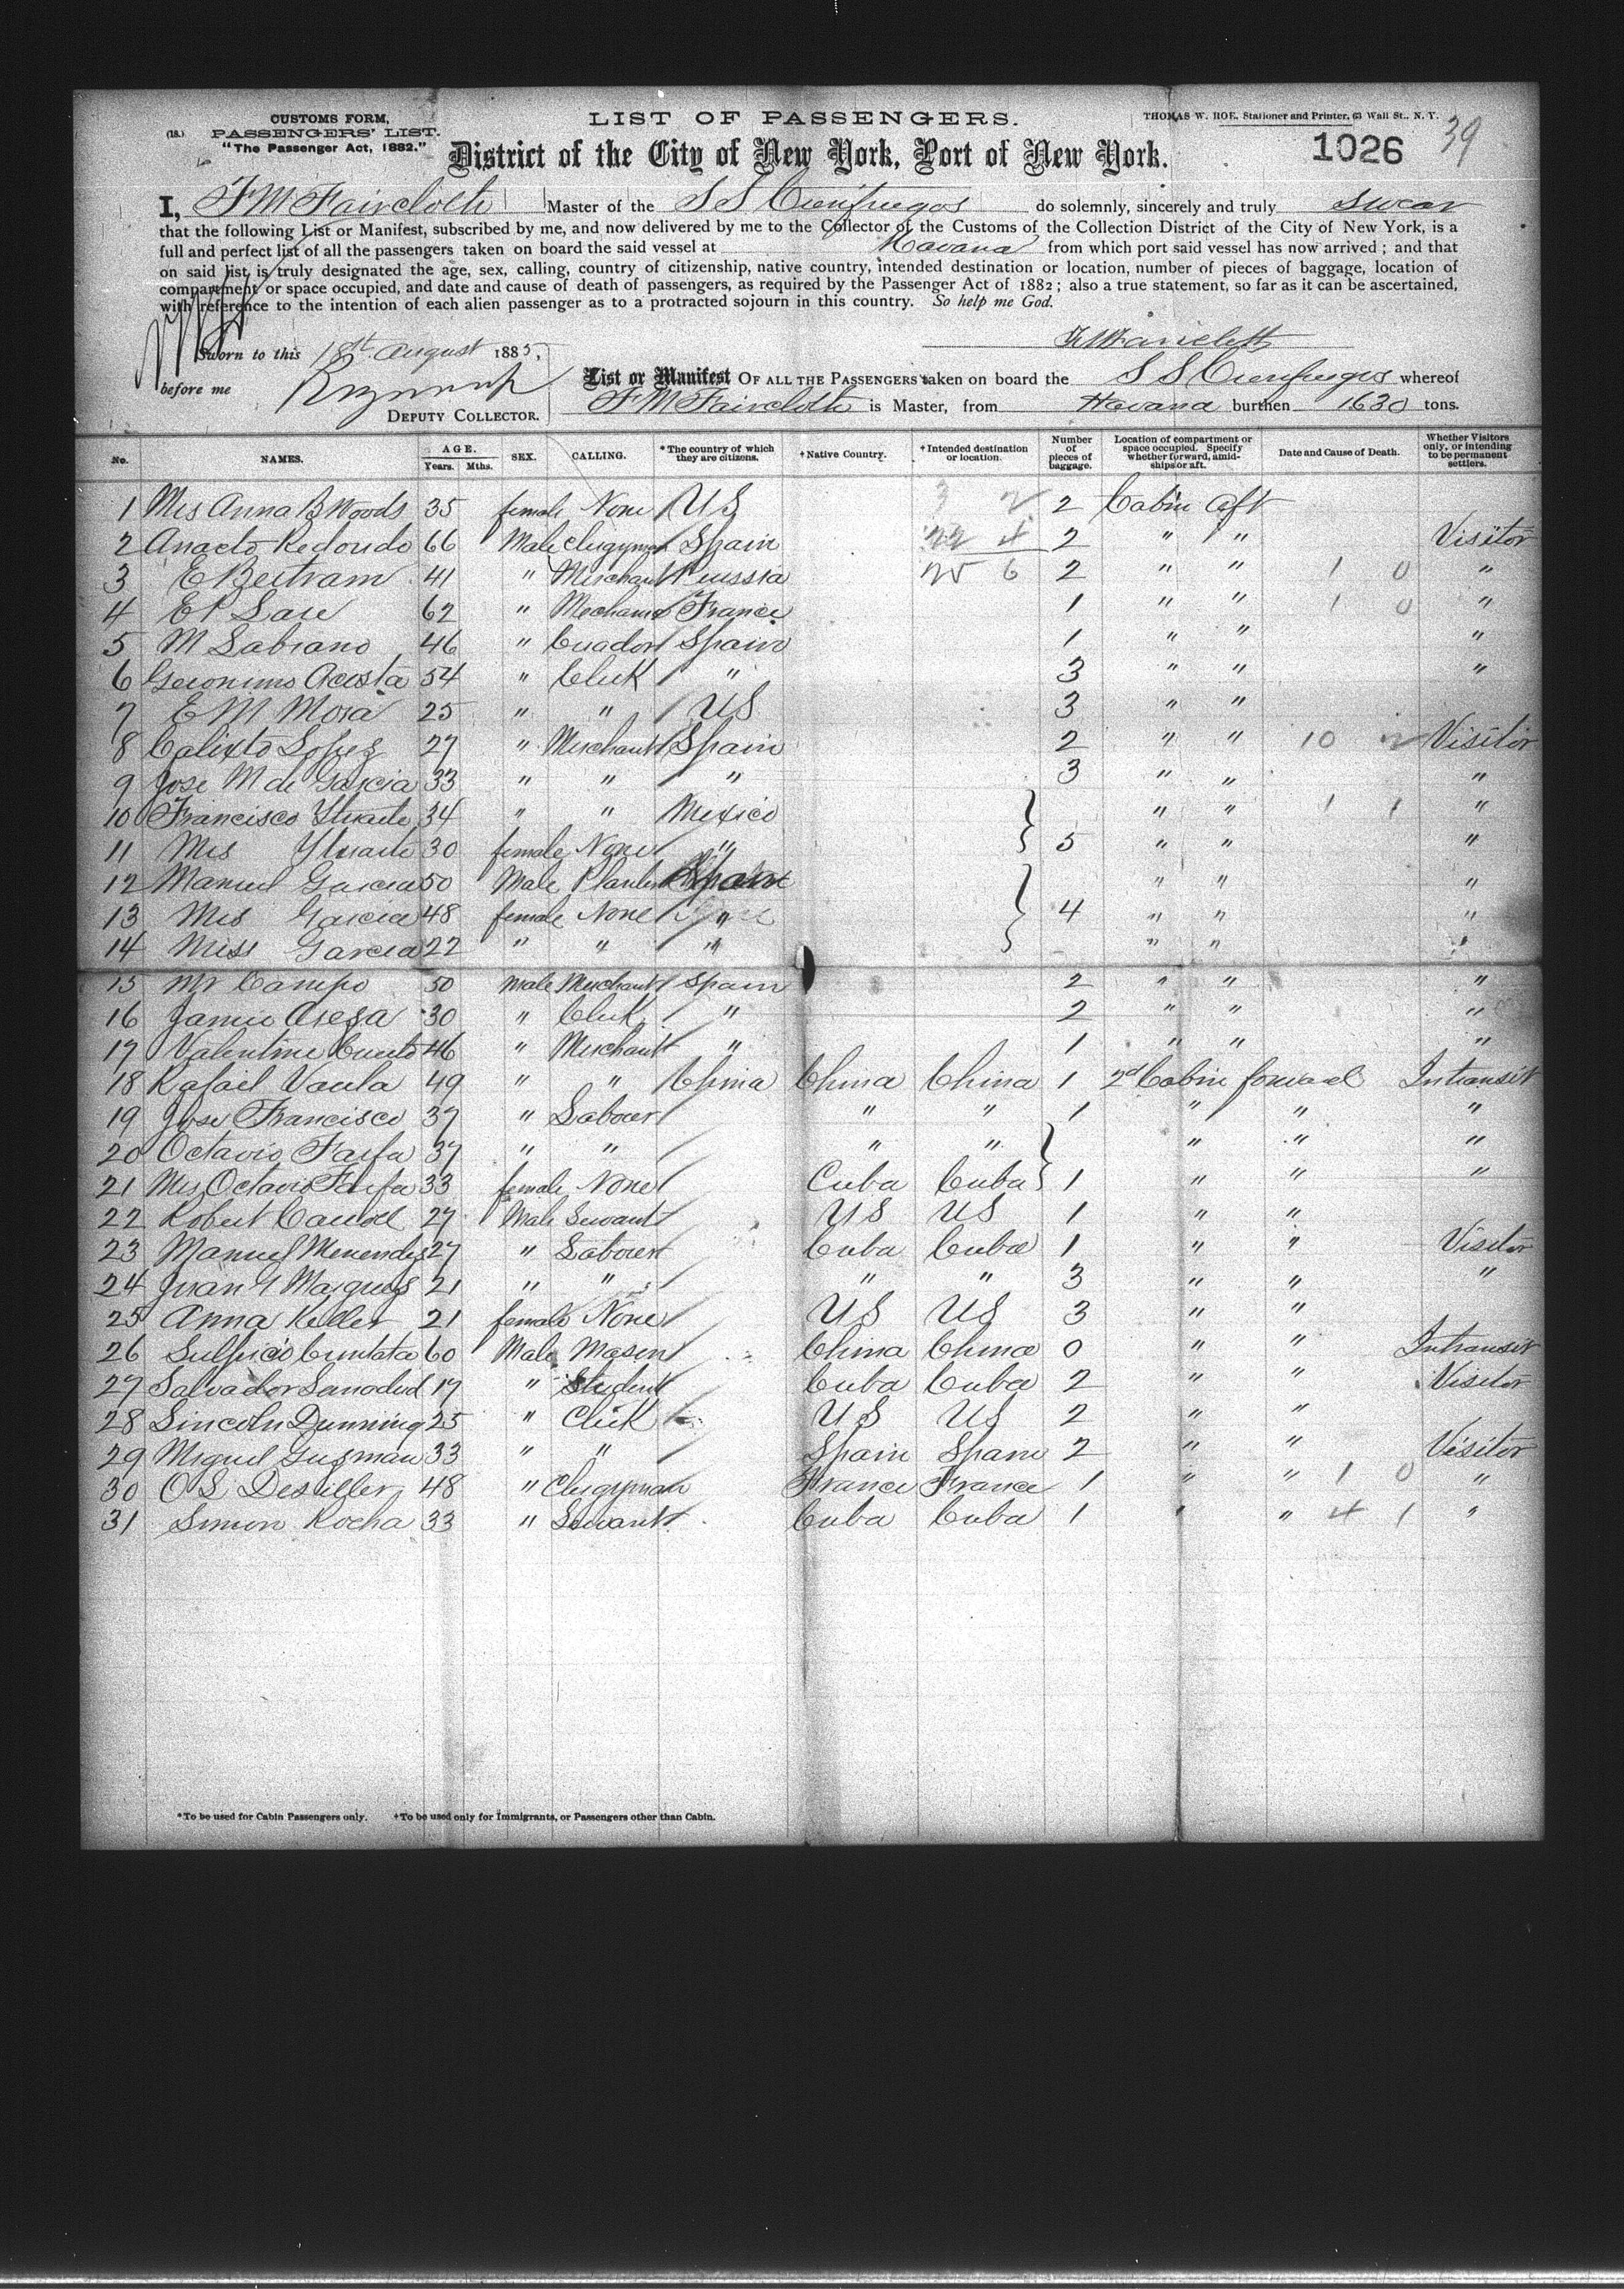 CUSTOMS FORM,
(18.) PASSENGERS' LIST.
"The Passenger Act, 1882."
LIST OF PASSENGERS.
THOMAS W. ROE, Stationer and Printer, 63 Wall St., N. Y.
District of the City of New York, Port of New York.
1026 39
I, F M Faircloth Master of the S S Cienfuegos do solemnly, sincerely and truly swear
that the following List or Manifest, subscribed by me, and now delivered by me to the Collector of the Customs of the Collection District of the City of New York, is a
full and perfect list of all the passengers taken on board the said vessel at Havana from which port said vessel has now arrived; and that
on said list is truly designated the age, sex, calling, country of citizenship, native country, intended destination or location, number of pieces of baggage, location of
compartment or space occupied, and date and cause of death of passengers, as required by the Passenger Act of 1882; also a true statement, so far as it can be ascertained,
with reference to the intention of each alien passenger as to a protracted sojourn in this country. So help me God.
F M Faircloth
Sworn to this 18th August 1885,
before me
DEPUTY COLLECTOR.
List or Manifest OF ALL THE PASSENGERS taken on board the S S Cienfuegos whereof
F M Faircloth is Master, from Havana burthen 1630 tons.
No. NAMES. AGE. Years. Mths. SEX. CALLING. *The country of which they are citizens. †Native Country. †Intended destination or location. Number of pieces of baggage. Location of compartment or space occupied. Specify whether forward, amidships or aft. Date and Cause of Death. Whether Visitors only, or intending to be permanent settlers.
1 Mrs Anna B Woods 35 female None US 3 2 2 Cabin aft
2 Anacto Redondo 66 Male Clergyman Spain 22 4 2 " " Visitor
3 E Bertram 41 " Merchant Russia 25 6 2 " " 1 0 "
4 62 " Mechanic France 1 " " 1 0 "
5 M Sabrano 46 " Spain 1 " " "
6 Geronimo Acosta 54 " Clerk " 3 " " "
7 E M Mora 25 " " US 3 " "
8 Calixto Lopez 27 " Merchant Spain 2 " " 10 2 Visitor
9 Jose M de Garcia 33 " " " 3 " " "
10 Francisco Yturite 34 " " Mexico " " 1 1 "
11 Mrs Yturite 30 female None " 5 " " "
12 Manuel Garcia 50 Male Planter Spain " " "
13 Mrs Garcia 48 female None " 4 " " "
14 Miss Garcia 22 " " " " " "
15 Mr Campo 50 Male Merchant Spain 2 " " "
16 30 " Clerk " 2 " " "
17 Valentine Cueto 46 " Merchant " 1 " " "
18 Rafael Vaula 49 " " China China China 1 2d Cabin forward Intransit
19 Jose Francisco 37 " Labour " " 1 " " "
20 Octavio Farfa 37 " " " " " " "
21 Mrs Octavio Farfa 33 female None Cuba Cuba 1 " " "
22 Robert Carroll 27 Male Servant US US 1 " "
23 Manuel Menendez 27 " Labourer Cuba Cuba 1 " " Visitor
24 Juan Y Marques 21 " " " " 3 " " "
25 Anna Keller 21 female None US US 3 " "
26 Sulpicio 60 Male Mason China China 0 " " Intransit
27 Salvador 17 " Student Cuba Cuba 2 " " Visitor
28 Lincoln Dunning 25 " Clerk US US 2 " "
29 Miguel Guzman 33 " " Spain Spain 2 " " Visitor
30 O S 48 " Clergyman France France 1 " " 1 0 "
31 Simon Rocha 33 " Servant Cuba Cuba 1 " " 4 1 "
*To be used for Cabin Passengers only. †To be used only for Immigrants, or Passengers other than Cabin.